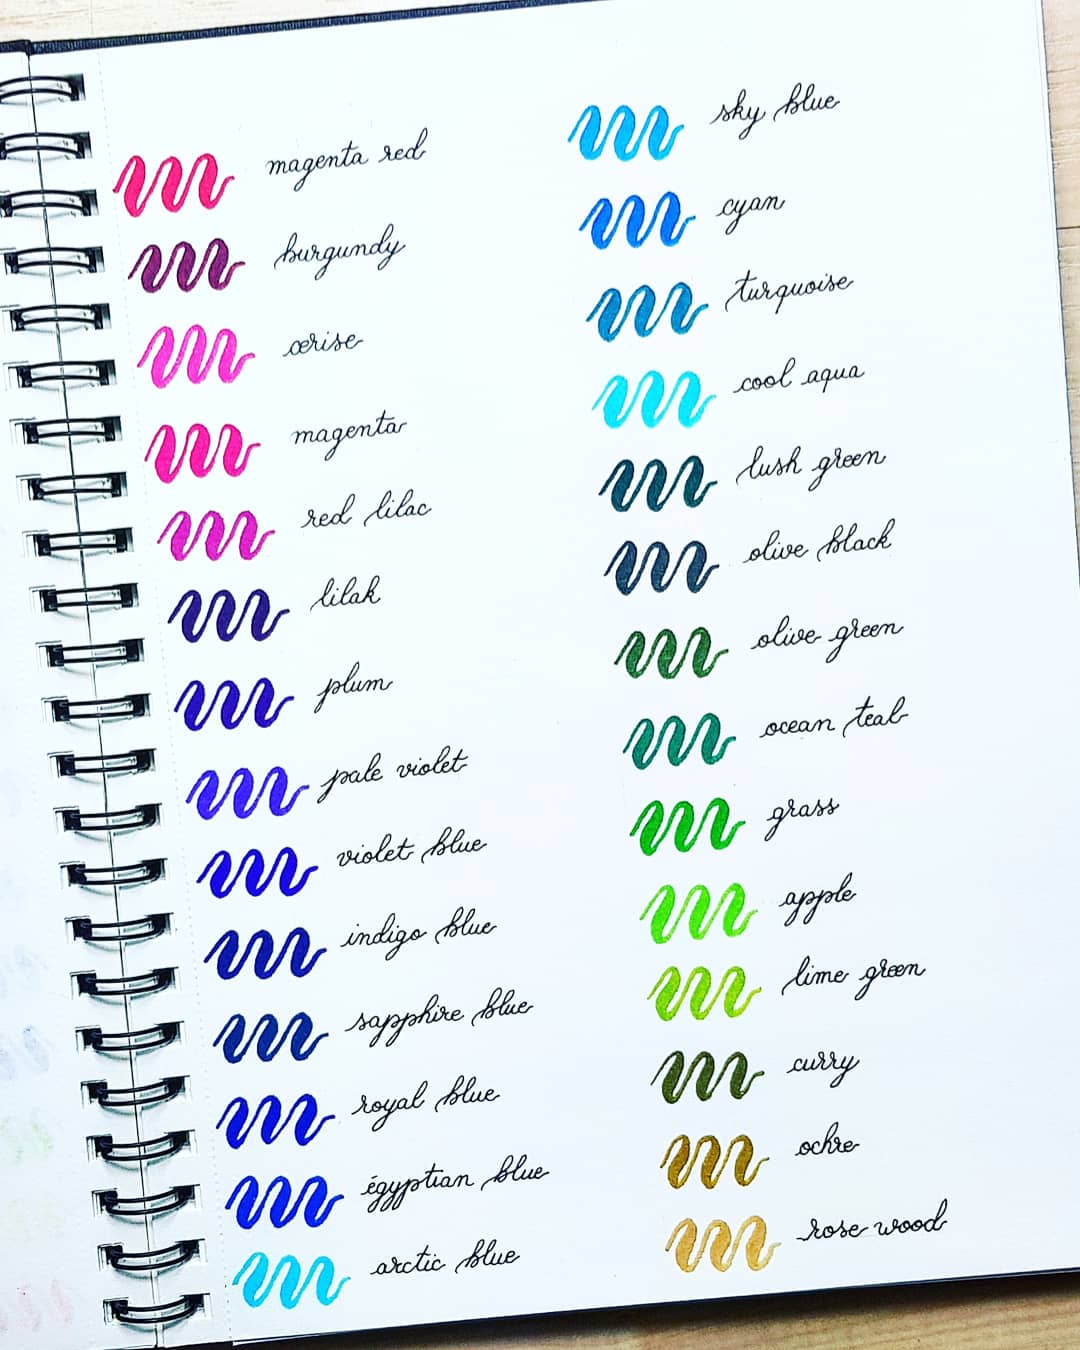 magenta red
burgundy
cerise
magenta
red lilac
lilak
plum
pale violet
violet blue
indigo blue
sapphire blue
royal blue
égyptian blue
arctic blue
sky blue
cyan
turquoise
cool aqua
lush green
olive black
olive green
ocean teal
grass
apple
lime green
curry
ochre
rose wood